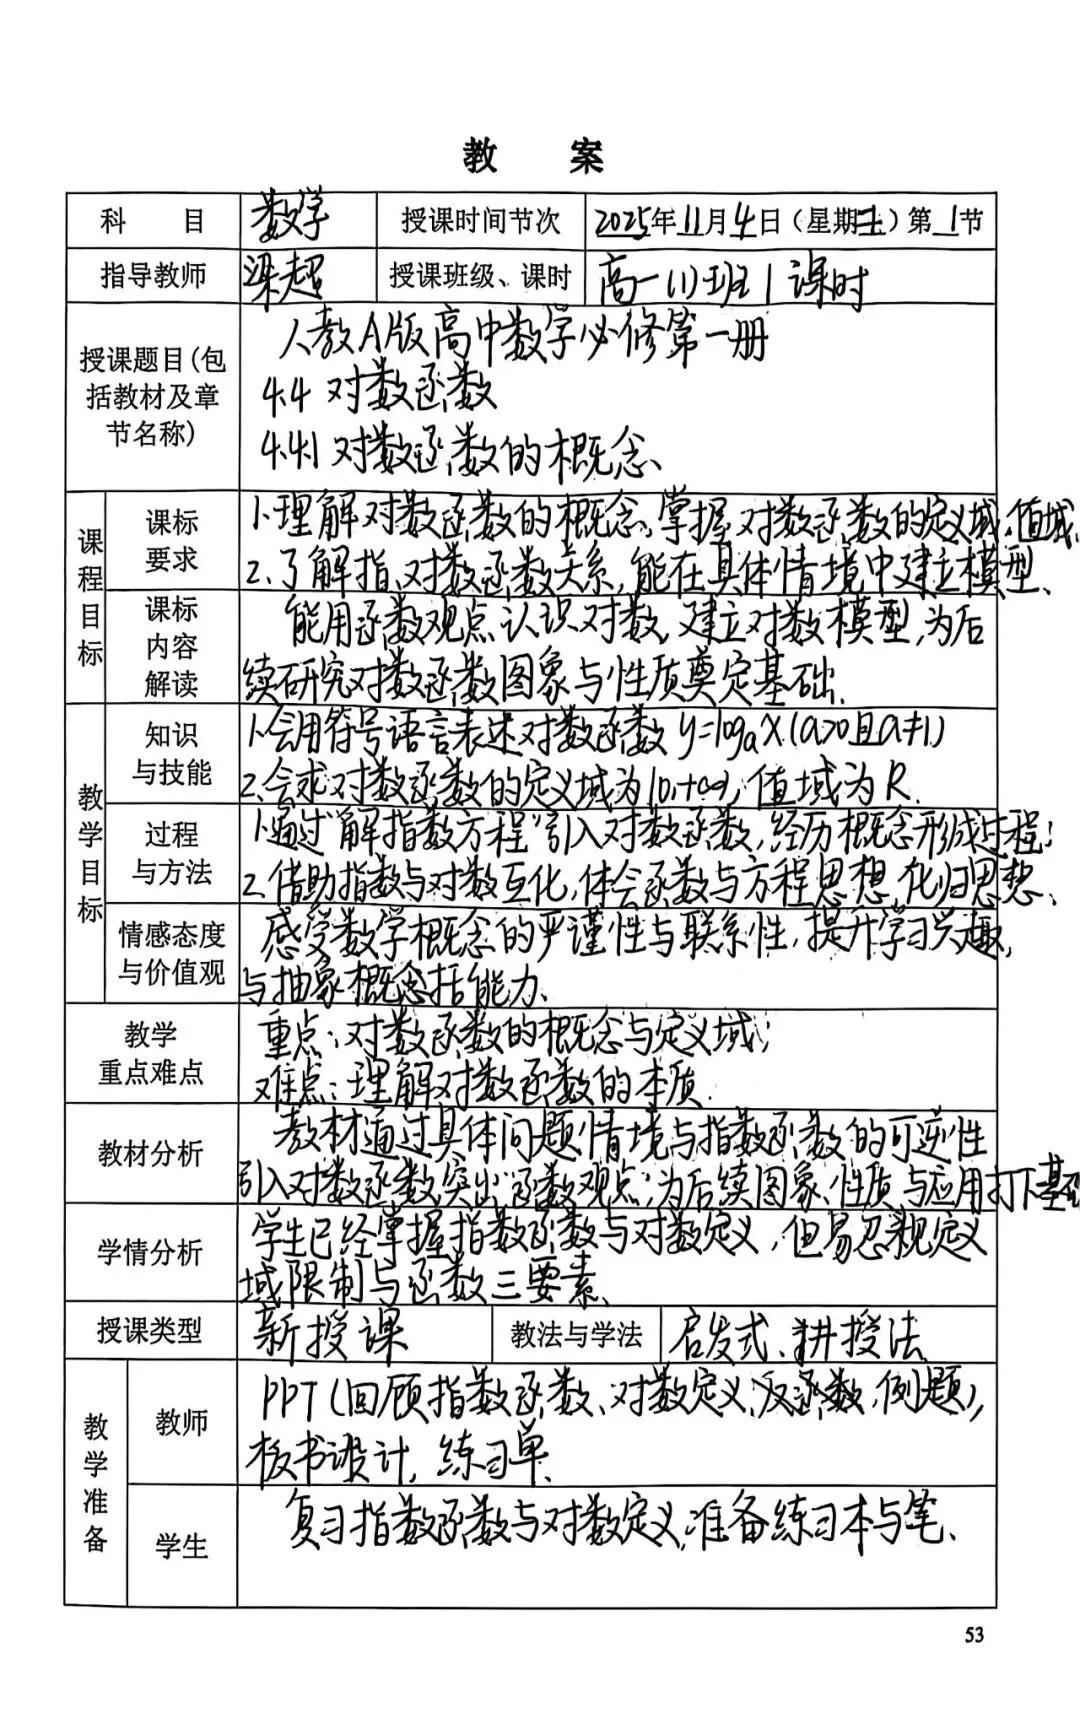 教 案
科 目 数学 授课时间节次 2025年11月4日(星期二)第1节
指导教师 梁超 授课班级、课时 高一(1)班 1课时
授课题目(包括教材及章节名称)
人教A版高中数学必修第一册
4.4 对数函数
4.4.1 对数函数的概念、
课程目标
课标要求
1.理解对数函数的概念,掌握对数函数的定义域,值域、
2.了解指、对数函数关系,能在具体情境中建立模型、
课标内容解读
能用函数观点认识对数,建立对数模型,为后
续研究对数函数图象与性质奠定基础.
教学目标
知识与技能
1.会用符号语言表述对数函数 y=logₐx(a>0且a≠1)
2.会求对数函数的定义域为(0,+∞),值域为R.
过程与方法
1.通过“解指数方程”引入对数函数,经历概念形成过程;
2.借助指数与对数互化,体会函数与方程思想、化归思想、
情感态度与价值观
感受数学概念的严谨性与联系性,提升学习兴趣,
与抽象概念括能力、
教学重点难点
重点:对数函数的概念与定义域;
难点:理解对数函数的本质.
教材分析
教材通过具体问题情境与指数函数的可逆性
引入对数函数,突出“函数观点”,为后续图象、性质与应用打下基础
学情分析
学生已经掌握指数函数与对数定义,但易忽视定义
域限制与函数三要素、
授课类型 新授课 教法与学法 启发式、讲授法
教学准备
教师
PPT(回顾指数函数、对数定义、反函数、例题),
板书设计,练习单.
学生
复习指数函数与对数定义,准备练习本与笔、
53